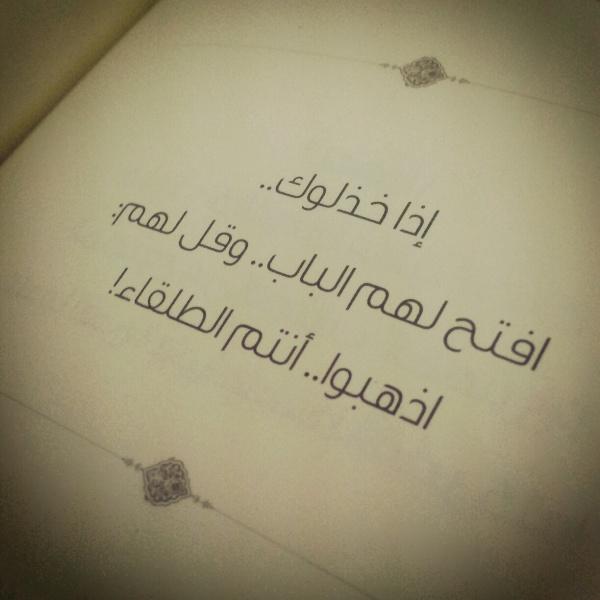 إذا خذلوك..
افتح لهم الباب.. وقل لهم:
اذهبوا.. أنتم الطلقاء!